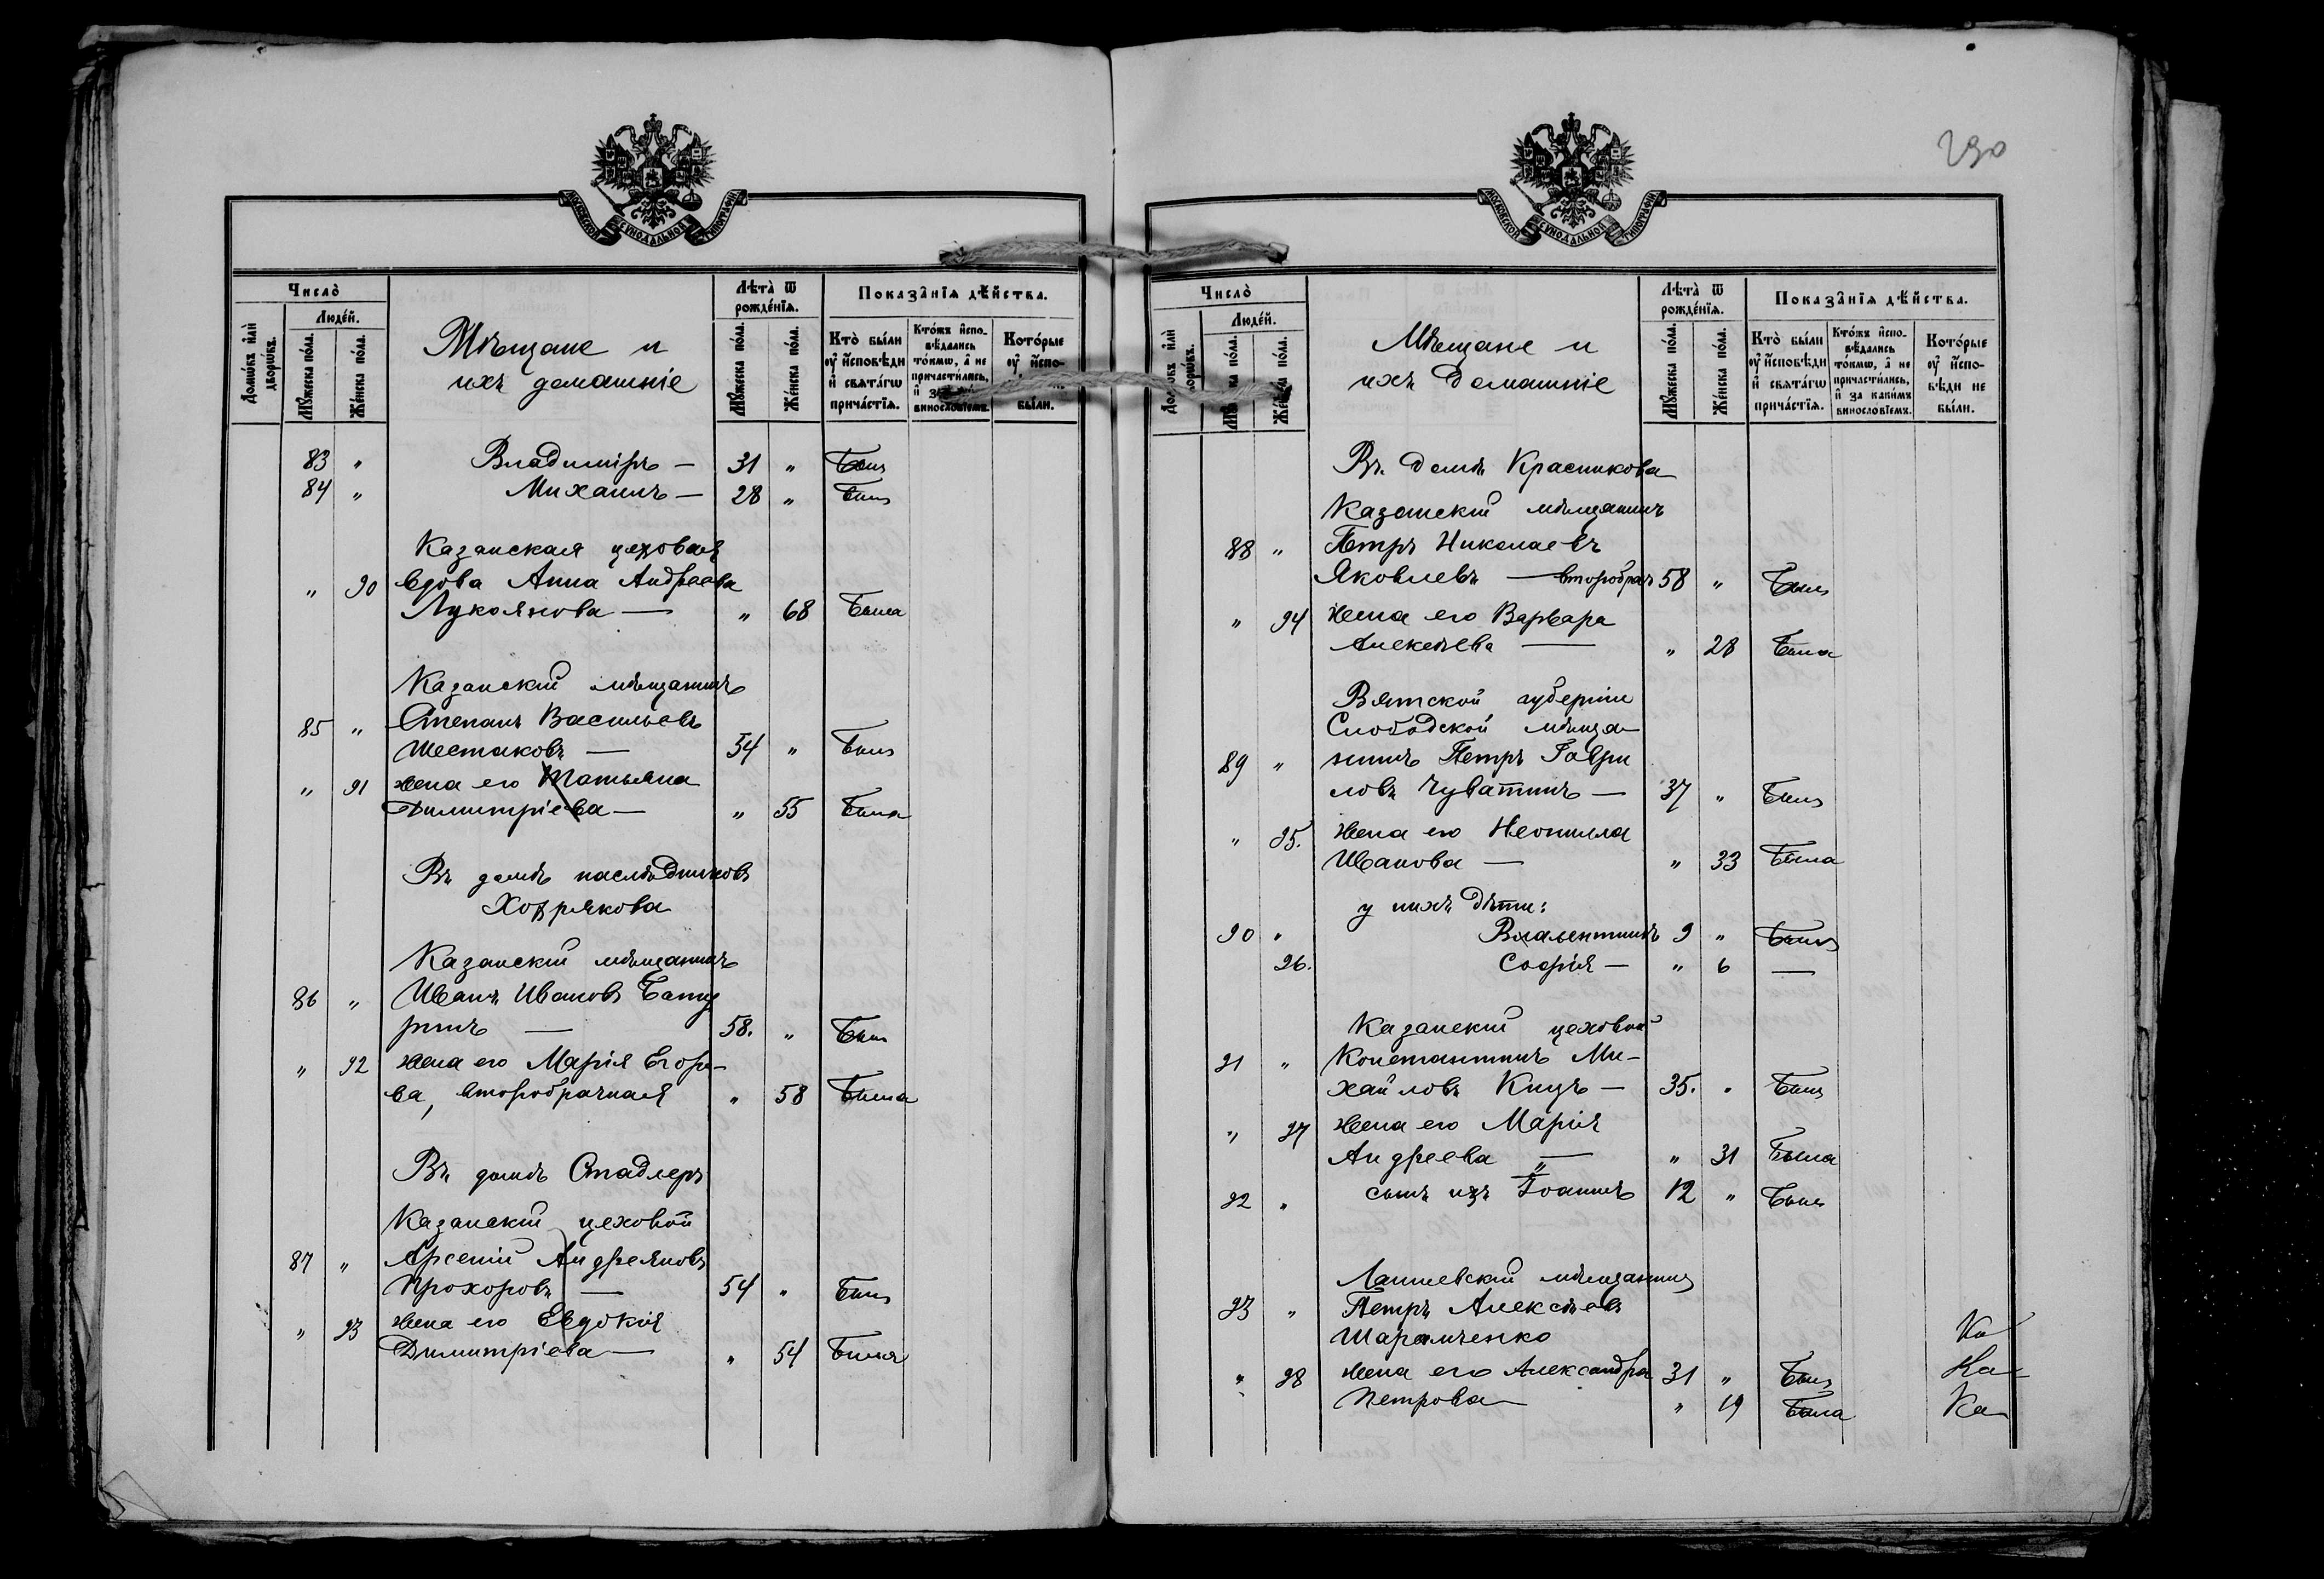 МОСКОВСКОЙ СѴНОДАЛЬНОЙ ТИПОГРАФІИ
Число̀
Домѡ́въ и҆лѝ дворѡ́въ.
Люде́й.
Мꙋ́жеска по́ла.
Же́нска по́ла.
Мѣщане и
ихъ домашніе
Лѣ́та ѿ рожде́нїѧ.
Мꙋ́жеска по́ла.
Же́нска по́ла.
Показа̑нїѧ дѣ́йства.
Кто̀ бы́ли ᲂу҆ и҆сповѣди и҆ свѧта́гѡ прича́стїѧ.
Кто́жъ и҆спо- вѣдались то́кмѡ, а҆ не причасти́лись,
Кото́рые ᲂу҆ и҆спо-
бы́ли.
83 " Владиміръ — 31 " Былъ
84 " Михаилъ — 28 " Былъ
Казанская цеховая
" 90 вдова Анна Андреева
Лукоянова — " 68 Была
Казанскій мѣщанинъ
85 " Степанъ Васильевъ
Шестаковъ — 54 " Былъ
" 91 жена его Татьяна
Димитріева — " 55 Была
Въ домѣ наслѣдниковъ
Хохрякова
Казанскій мѣщанинъ
86 " Иванъ Ивановъ Бату
ринъ — 58. " Былъ
" 92 жена его Марія Егоро-
ва, второбрачная " 58 Была
Въ домѣ Стадлеръ
Казанскій цеховой
87 " Арсеній Андреяновъ
Прохоровъ — 54 " Былъ
" 93 жена его Евдокія
Димитріева — " 54 Была
290
МОСКОВСКОЙ СѴНОДАЛЬНОЙ ТИПОГРАФІИ
Число̀
Люде́й.
Же́нска по́ла.
Мѣщане и
ихъ домашніе
Лѣ́та ѿ рожде́нїѧ.
Мꙋ́жеска по́ла.
Же́нска по́ла.
Показа̑нїѧ дѣ́йства.
Кто̀ бы́ли ᲂу҆ и҆сповѣди и҆ свѧта́гѡ прича́стїѧ.
Кто́жъ и҆спо- вѣдались то́кмѡ, а҆ не причасти́лись, и҆ за каки́мъ винословїемъ.
Кото́рые ᲂу҆ и҆спо- вѣди не бы́ли.
Въ домѣ Красикова
Казанскій мѣщанинъ
88 " Петръ Николаевъ
Яковлевъ — второбрач 58 " Былъ
" 94 жена его Варвара
Алексѣева — " 28 Была
Вятской губерніи
Слободской мѣща-
89 " нинъ Петръ Гаври
ловъ Чуватинъ — 37 " Былъ
" 95. жена его Неонилла
Иванова — " 33 Была
у нихъ дѣти:
90 " Валентинъ 9 " Былъ
96. Софія — " 6 —
Казанскій цеховой
91 " Константинъ Ми-
хайловъ Кицъ — 35. " Былъ
" 97 жена его Марія
Андреева — " 31 Была
92 " сынъ ихъ Іоаннъ 12 " Былъ
Лаишевскій мѣщанинъ
93 " Петръ Алексѣевъ
Шарамченко
" 98 жена его Александра 31 " Былъ
Петрова — " 19 Была